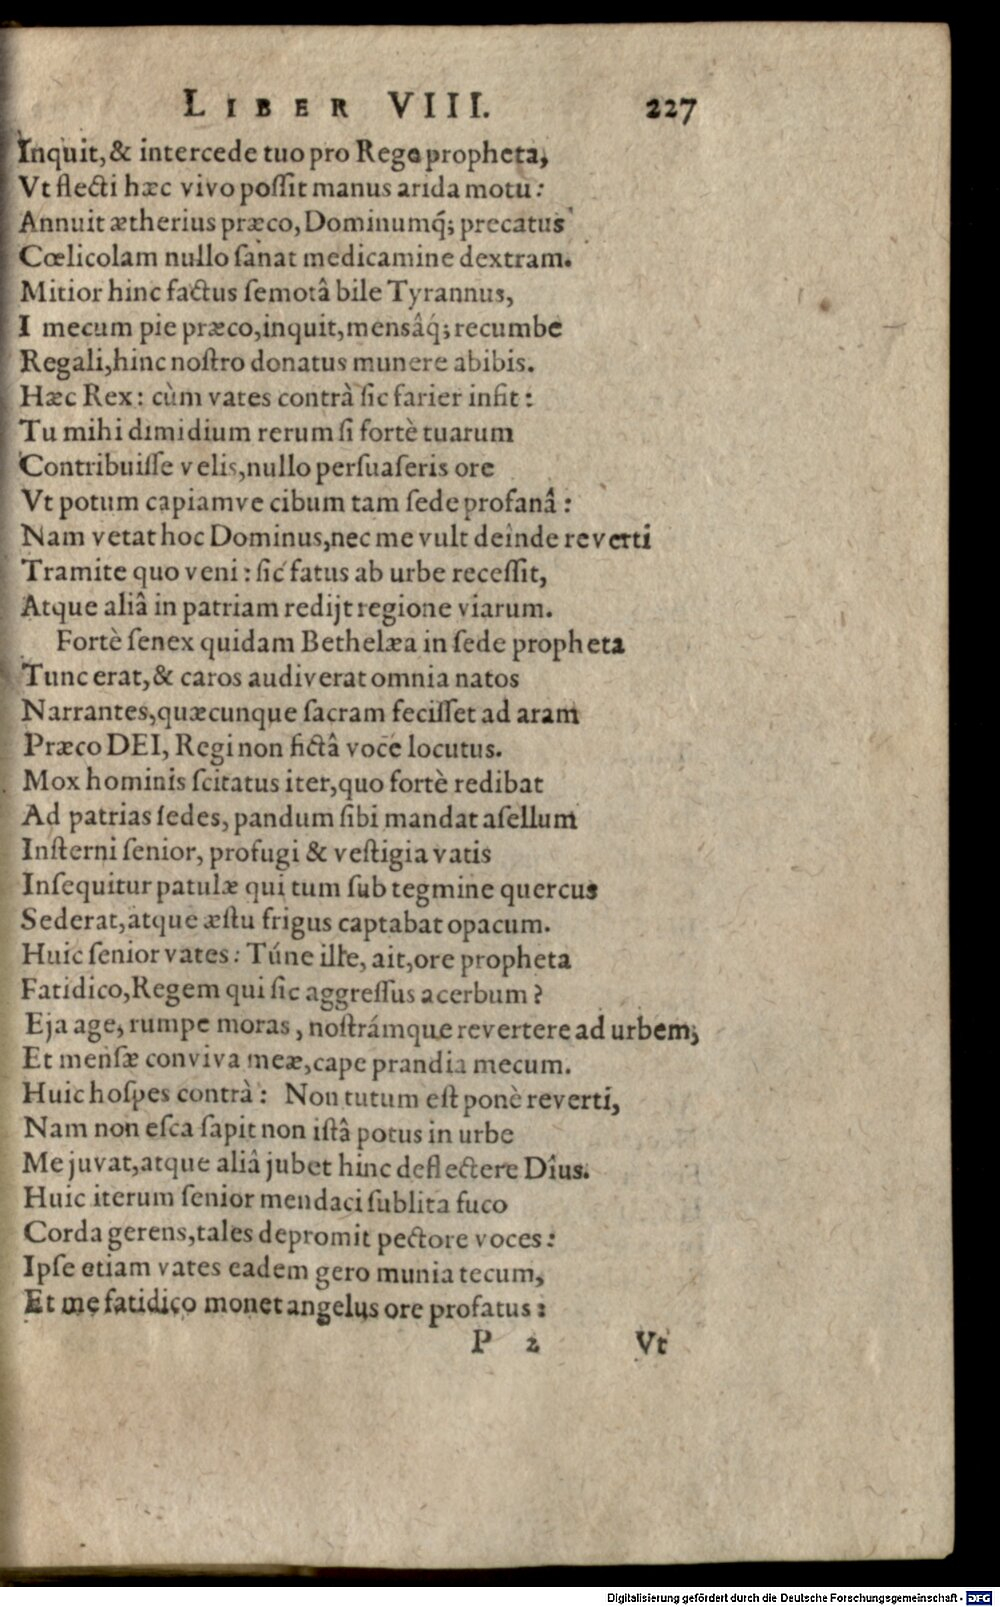 LIBER VIII. 227
Inquit, & intercede tuo pro Rege propheta,
Vt flecti hæc vivo poſſit manus arida motu:
Annuit ætherius præco, Dominumq́; precatus
Cœlicolam nullo ſanat medicamine dextram.
Mitior hinc factus ſemotâ bile Tyrannus,
I mecum pie præco, inquit, mensâq́; recumbe
Regali, hinc noſtro donatus munere abibis.
Hæc Rex: cùm vates contrà ſic farier infit:
Tu mihi dimidium rerum ſi fortè tuarum
Contribuiſſe velis, nullo perſuaſeris ore
Vt potum capiamve cibum tam ſede profanâ:
Nam vetat hoc Dominus, nec me vult deinde reverti
Tramite quo veni: ſic fatus ab urbe receſſit,
Atque aliâ in patriam redijt regione viarum.
Fortè ſenex quidam Bethelæa in ſede propheta
Tunc erat, & caros audiverat omnia natos
Narrantes, quæcunque ſacram feciſſet ad aram
Præco DEI, Regi non fictâ voce locutus.
Mox hominis ſcitatus iter, quo fortè redibat
Ad patrias ſedes, pandum ſibi mandat aſellum
Inſterni ſenior, profugi & veſtigia vatis
Inſequitur patulæ qui tum ſub tegmine quercus
Sederat, atque æſtu frigus captabat opacum.
Huic ſenior vates: Túne ille, ait, ore propheta
Fatidico, Regem qui ſic aggreſſus acerbum?
Eja age, rumpe moras, noſtrámque revertere ad urbem;
Et menſæ conviva meæ, cape prandia mecum.
Huic hoſpes contrà: Non tutum eſt ponè reverti,
Nam non eſca ſapit non iſtâ potus in urbe
Me juvat, atque aliâ jubet hinc deflectere Dîus.
Huic iterum ſenior mendaci ſublita fuco
Corda gerens, tales depromit pectore voces:
Ipſe etiam vates eadem gero munia tecum,
Et me fatidico monet angelus ore profatus:
P 2 Vt
Digitalisierung gefördert durch die Deutsche Forschungsgemeinschaft - DFG